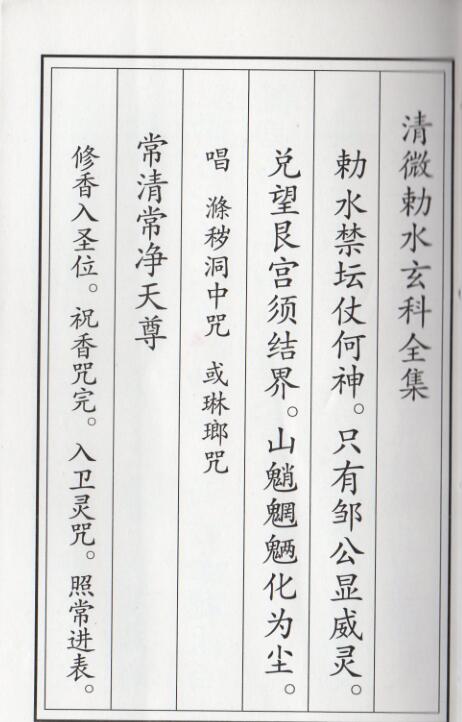 清微勅水玄科全集
勅水禁坛仗何神。只有邹公显威灵。
兑望艮宫须结界。山魈魍魉化为尘。
唱 滌秽洞中咒 或琳瑯咒
常清常净天尊
修香入圣位。祝香咒完。入卫灵咒。照常进表。